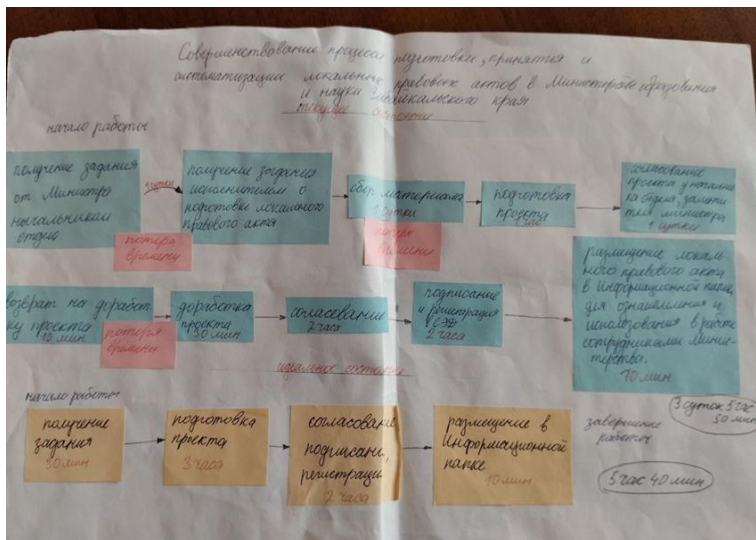 Совершенствование процесса подготовки, принятия и
систематизации локальных правовых актов в Министерстве образования
и науки Забайкальского края
текущее состояние
начало работы
получение задания
от Министра
начальником
отдела
потеря
времени
сутки
получение задания
исполнителем о
подготовки локального
правового акта
сбор материала
1 сутки
потеря
времени
подготовка
проекта
1 час
согласование
проекта у начальни
ка отдела, замести
теля министра
1 сутки
возврат на доработ
ку проекта
10 мин
потеря
времени
доработка
проекта
30 мин
согласование
2 часа
подписание
и регистрация
в СЭД
2 часа
размещение локаль
ного правового акта
в Информационной папке,
для ознакомления и
использования в работе
сотрудниками Минис-
терства.
10 мин
3 суток 5 час
50 мин
идеальное состояние
начало работы
получение
задания
30 мин
подготовка
проекта
3 часа
согласование
подписани,
регистраци
2 часа
размещение в
Информационной
папке
10 мин
завершение
работы
5 час 40 мин